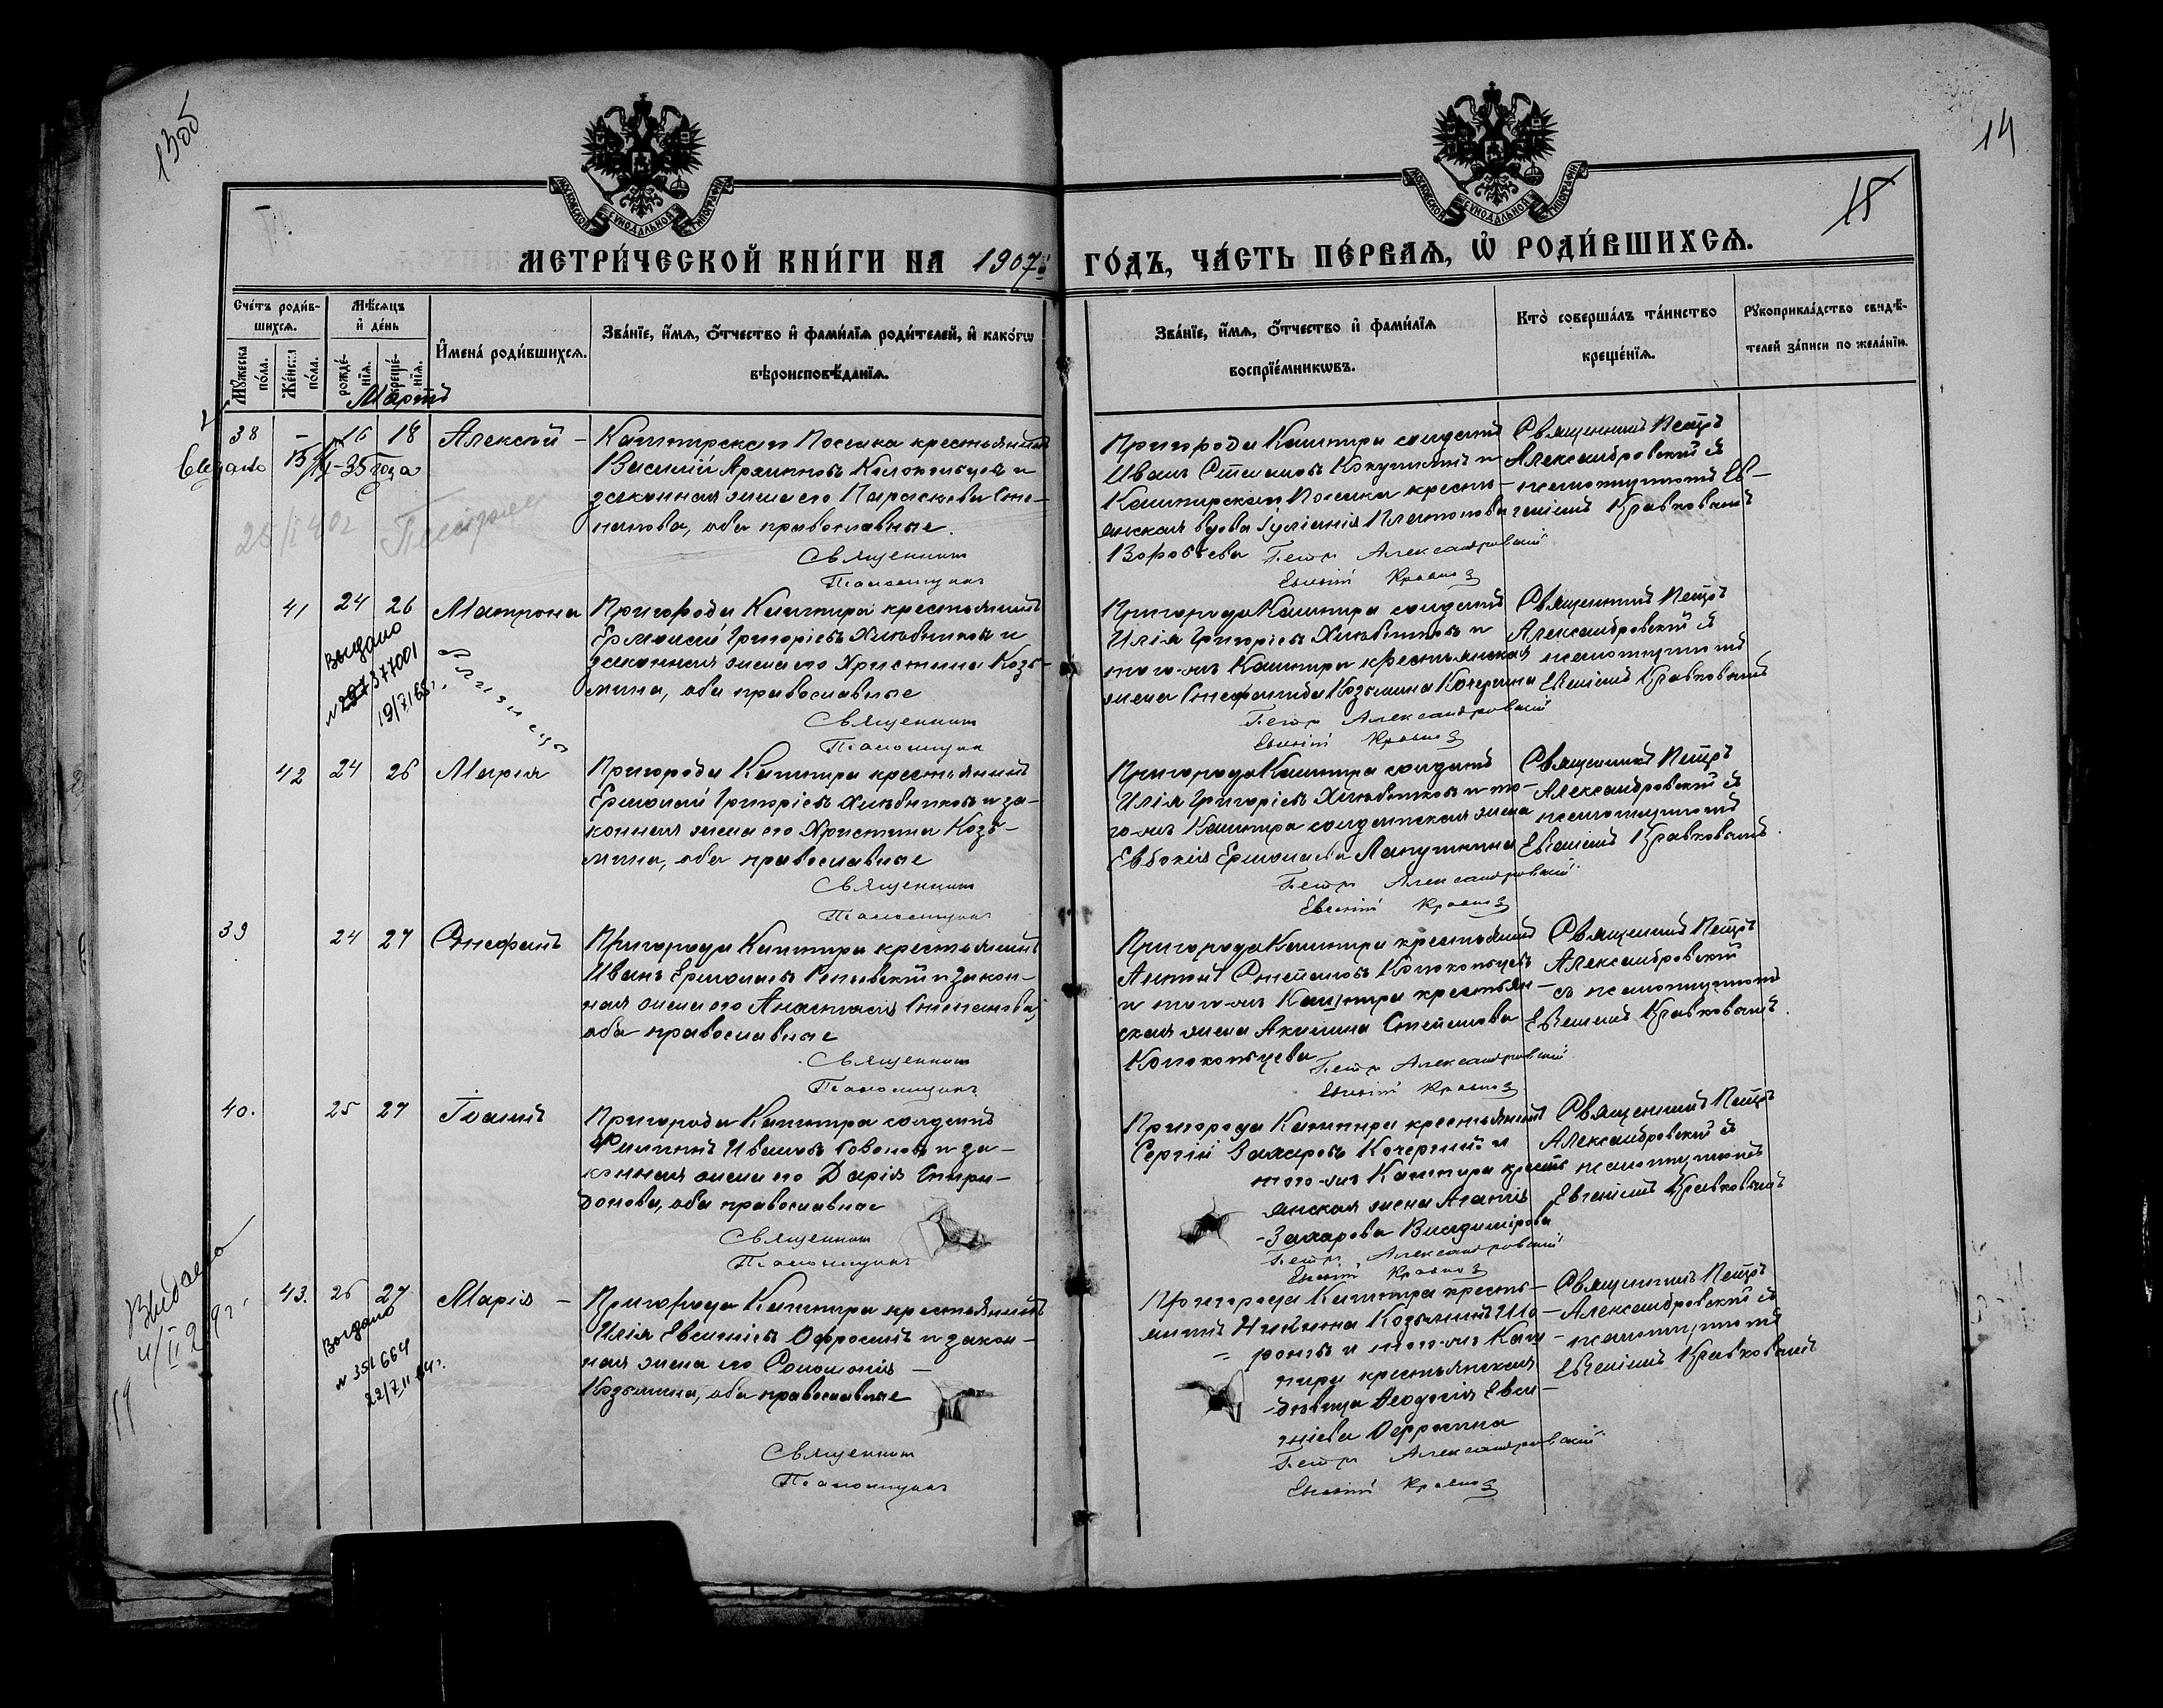 13об
14
15
МОСКОВСКОЙ СѴНОДАЛЬНОЙ ТИПОГРАФІИ
МОСКОВСКОЙ СѴНОДАЛЬНОЙ ТИПОГРАФІИ
МЕТРИ́ЧЕСКОЙ КНИ́ГИ НА 1907й ГО́ДЪ, ЧА́СТЬ ПЕ́РВАѦ, Ѡ҆ РОДИ́ВШИХСѦ.
Сче́тъ роди́в-
шихсѧ.
Мꙋ́жеска по́ла.
Же́нска по́ла.
Мѣ́сѧцъ
и҆ де́нь
рожде́-
нїѧ.
креще́-
нїѧ.
И҆мена́ роди́вшихсѧ.
Зва́нїе, и҆́мѧ, ѻ҆́тчество и҆ фамѝлїѧ роди́телей, и҆ како́гѡ
вѣроисповѣ́данїѧ.
Зва́нїе, и҆́мѧ, ѻ҆́тчество и҆ фамѝлїѧ
воспрїе́мникѡвъ.
Кто̀ соверша́лъ та́инство
креще́нїѧ.
Рꙋкоприкла́дство свидѣ́-
телей за́писи по жела́нїю.
Мартъ
38 – 16 18 Алексій –
Каштирскаго Поселка крестьянинъ
Василій Архиповъ Колокольцовъ и
законная жена его Параскева Сте-
панова, оба православные.
Священник
Псаломщик
Пригорода Каштира солдатъ
Иванъ Степановъ Кокушкинъ и
Каштирскаго Поселка кресть-
янская вдова Іуліанія Платонова
Воробьева
Петр Александровский
Евгений Кравков
Священникъ Петръ
Александровскій съ
псаломщикомъ Ев-
геніемъ Кравковымъ
35 года
25/I 40г
41 24 26 Матрона
Выдано
19/7/68г.
близнецы
Пригорода Каштира крестьянинъ
Ермолай Григорьевъ Хлѣбниковъ и
законная жена его Христина Козь-
мина, оба православные
Священник
Псаломщик
Пригорода Каштира солдатъ
Илія Григорьевъ Хлѣбниковъ и
того-же Каштира крестьянская
жена Стефанида Козьмина Кочергина
Петр Александровский
Евгений Кравков
Священникъ Петръ
Александровскій съ
псаломщикомъ
Евгеніемъ Кравковымъ
42 24 26 Марія
Пригорода Каштира крестьянинъ
Ермолай Григорьевъ Хлѣбниковъ и за-
конная жена его Христина Козь-
мина, оба православные
Священник
Псаломщик
Пригорода Каштира солдатъ
Илія Григорьевъ Хлѣбниковъ и то-
го-же Каштира солдатская жена
Евдокія Ермолаева Лапушкина
Петр Александровский
Евгений Кравков
Священникъ Петръ
Александровскій съ
псаломщикомъ
Евгеніемъ Кравковымъ.
39 24 27 Стефанъ
Пригорода Каштира крестьянинъ
Иванъ Ермолаевъ и закон-
ная жена его Анастасія Степанова,
оба православные
Священник
Псаломщик
Пригорода Каштира крестьянинъ
Антонъ Степановъ Колокольцевъ
и того-же Каштира крестьян-
ская жена Акилина Степанова
Колокольцева
Петр Александровский
Евгений Кравков
Священникъ Петръ
Александровскій
съ псаломщикомъ
Евгеніемъ Кравковымъ.
40. 25 27 Іоаннъ
Пригорода Каштира солдатъ
Филиппъ Ивановъ и за-
конная жена его Дарія Спири-
донова, оба православные
Священник
Псаломщик
Пригорода Каштира крестьянинъ
Сергій Захаровъ Кочергинъ и
того-же Каштира кресть-
янская жена Агапія
Захарова Владимірова
Петр Александровский
Евгений Кравков
Священникъ Петръ
Александровскій съ
псаломщикомъ
Евгеніемъ Кравковымъ
Выдано
43. 26 27 Марія –
Выдано
№ 351664
Пригорода Каштира крестьянинъ
Илія Евсигніевъ и закон-
ная жена его Соломонія –
Козьмина, оба православные
Священник
Псаломщик
Пригорода Каштира кресть-
янинъ Никита Козьминъ
и того-же Каш-
тира крестьянская
дѣвица Ѳеодосія Евси-
гніева
Петр Александровский
Евгений Кравков
Священникъ Петръ
Александровскій съ
псаломщикомъ
Евгеніемъ Кравковымъ